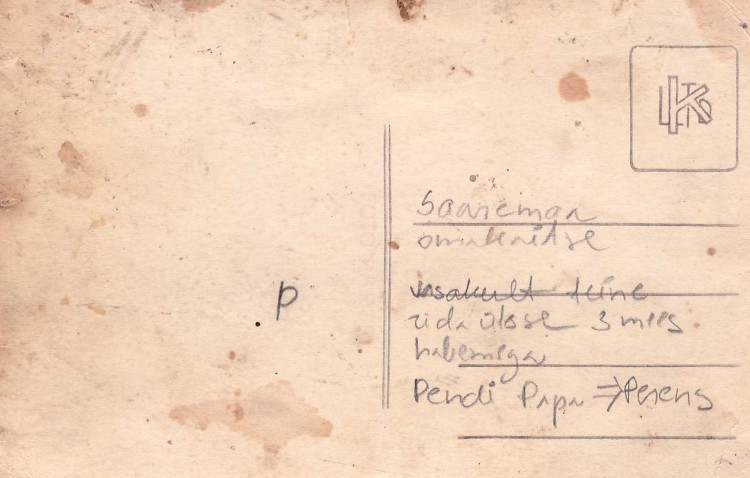 Saaremaa
omakaitse
vasakult teine
rida ülose 3 mees
habemega
Pendi Papa ⇒ Perens
p